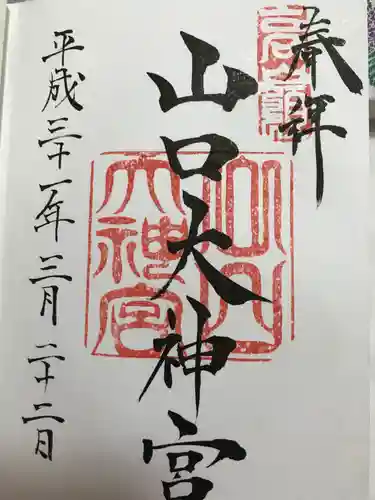 奉拝
山口大神宮
平成三十一年三月二十二日
山口
大神宮